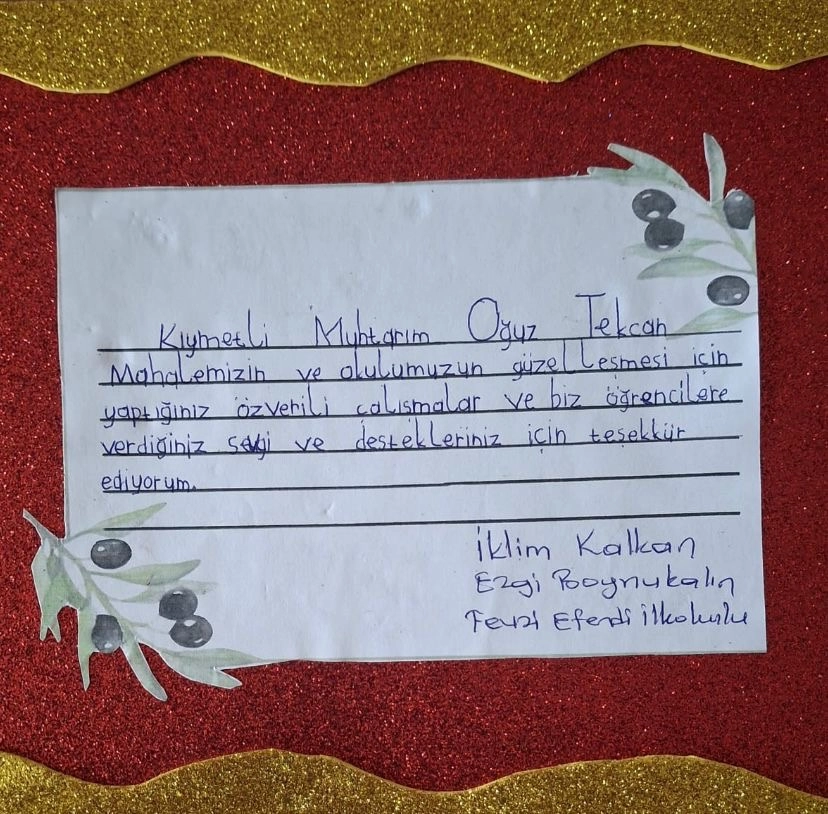 Kıymetli Muhtarım Oğuz Tekcan
Mahalemizin ve okulumuzun güzelleşmesi için
yaptığınız özverili çalışmalar ve biz öğrencilere
verdiğiniz sevgi ve destekleriniz için teşekkür
ediyorum.
İklim Kalkan
Ezgi Boynukalın
Fevzi Efendi ilkokulu